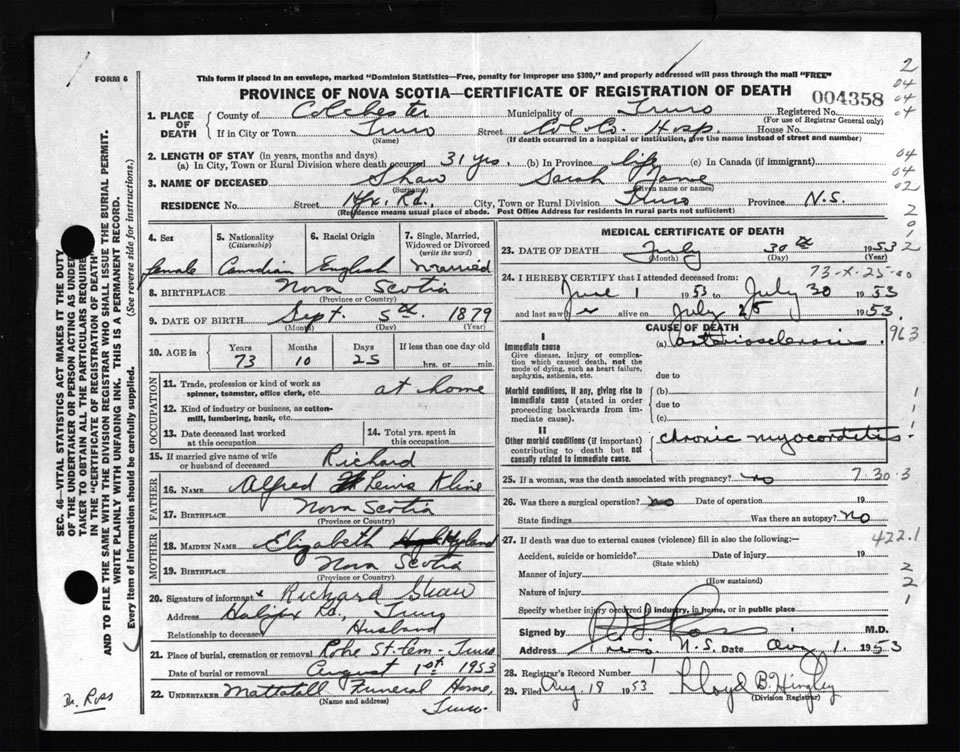 FORM 6
This form if placed in an envelope, marked "Dominion Statistics—Free, penalty for improper use $300," and properly addressed will pass through the mail "FREE"
PROVINCE OF NOVA SCOTIA—CERTIFICATE OF REGISTRATION OF DEATH
004358
1. PLACE OF DEATH
County of Colchester Municipality of Truro Registered No.
(For use of Registrar General only)
If in City or Town Truro Street Col. Co. Hosp. House No.
(Name) (If death occurred in a hospital or institution, give the name instead of street and number)
2. LENGTH OF STAY (in years, months and days)
(a) In City, Town or Rural Division where death occurred 31 yrs. (b) In Province life (c) In Canada (if immigrant)
3. NAME OF DECEASED Shaw Sarah Jane
(Surname) (Given name or names)
RESIDENCE No. Street Hfx. Rd. City, Town or Rural Division Truro Province N.S.
(Residence means usual place of abode. Post Office Address for residents in rural parts not sufficient)
4. Sex 5. Nationality 6. Racial Origin 7. Single, Married, Widowed or Divorced
(Citizenship) (write the word)
female Canadian English Married
8. BIRTHPLACE Nova Scotia
(Province or Country)
9. DATE OF BIRTH Sept. 5th. 1879
(Month) (Day) (Year)
10. AGE in Years Months Days If less than one day old
73 10 25 hrs. or min.
OCCUPATION
11. Trade, profession or kind of work as spinner, teamster, office clerk, etc. at home
12. Kind of industry or business, as cotton-mill, lumbering, bank, etc.
13. Date deceased last worked at this occupation
14. Total yrs. spent in this occupation
15. If married give name of wife or husband of deceased Richard
FATHER
16. NAME Alfred Lewis Kline
17. BIRTHPLACE Nova Scotia
(Province or Country)
MOTHER
18. MAIDEN NAME Elizabeth Hyland
19. BIRTHPLACE Nova Scotia
(Province or Country)
20. Signature of informant x Richard Shaw
Address Halifax Rd., Truro
Relationship to deceased Husband
21. Place of burial, cremation or removal Robie St. Cem- Truro
Date of burial or removal August 1st. 1953
22. UNDERTAKER Mattatall Funeral Home,
(Name and address) Truro.
MEDICAL CERTIFICATE OF DEATH
23. DATE OF DEATH July 30th 1953
(Month) (Day) (Year)
73-X-25-00
24. I HEREBY CERTIFY that I attended deceased from:
June 1 1953 to July 30 1953
and last saw her alive on July 25 1953.
CAUSE OF DEATH
I
Immediate cause
Give disease, injury or complication which caused death, not the mode of dying, such as heart failure, asphyxia, asthenia, etc.
(a) arteriosclerosis.
due to
Morbid conditions, if any, giving rise to immediate cause (stated in order proceeding backwards from immediate cause).
(b)
due to
(c)
II
Other morbid conditions (if important) contributing to death but not causally related to immediate cause.
chronic myocarditis.
25. If a woman, was the death associated with pregnancy? no
7-30-3
26. Was there a surgical operation? no Date of operation 19
State findings Was there an autopsy? no
27. If death was due to external causes (violence) fill in also the following:—
422.1
Accident, suicide or homicide? Date of injury 19
(State which)
Manner of injury
(How sustained)
Nature of injury
Specify whether injury occurred in industry, in home, or in public place
Signed by Ross M.D.
Address Truro. N.S. Date Aug. 1. 1953
28. Registrar's Record Number
29. Filed Aug. 18 1953 Lloyd B. Hingley
(Division Registrar)
SEC. 46—VITAL STATISTICS ACT MAKES IT THE DUTY
OF THE UNDERTAKER OR PERSON ACTING AS UNDERTAKER
TO OBTAIN ALL THE PARTICULARS REQUIRED
IN THE "CERTIFICATE OF REGISTRATION OF DEATH"
AND TO FILE THE SAME WITH THE DIVISION REGISTRAR WHO SHALL ISSUE THE BURIAL PERMIT.
WRITE PLAINLY WITH UNFADING INK. THIS IS A PERMANENT RECORD.
Every item of information should be carefully supplied. (See reverse side for instructions.)
Dr. Ross
2
04
04
04
04
04
02
963